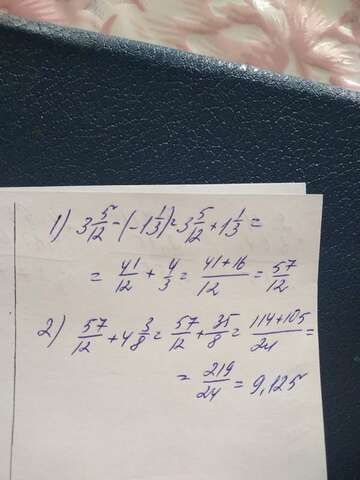 1) 3 5/12 - (-1 1/3) = 3 5/12 + 1 1/3 =
= 41/12 + 4/3 = 41+16/12 = 57/12.
2) 57/12 + 4 3/8 = 57/12 + 35/8 = 114+105/24 =
= 219/24 = 9,125